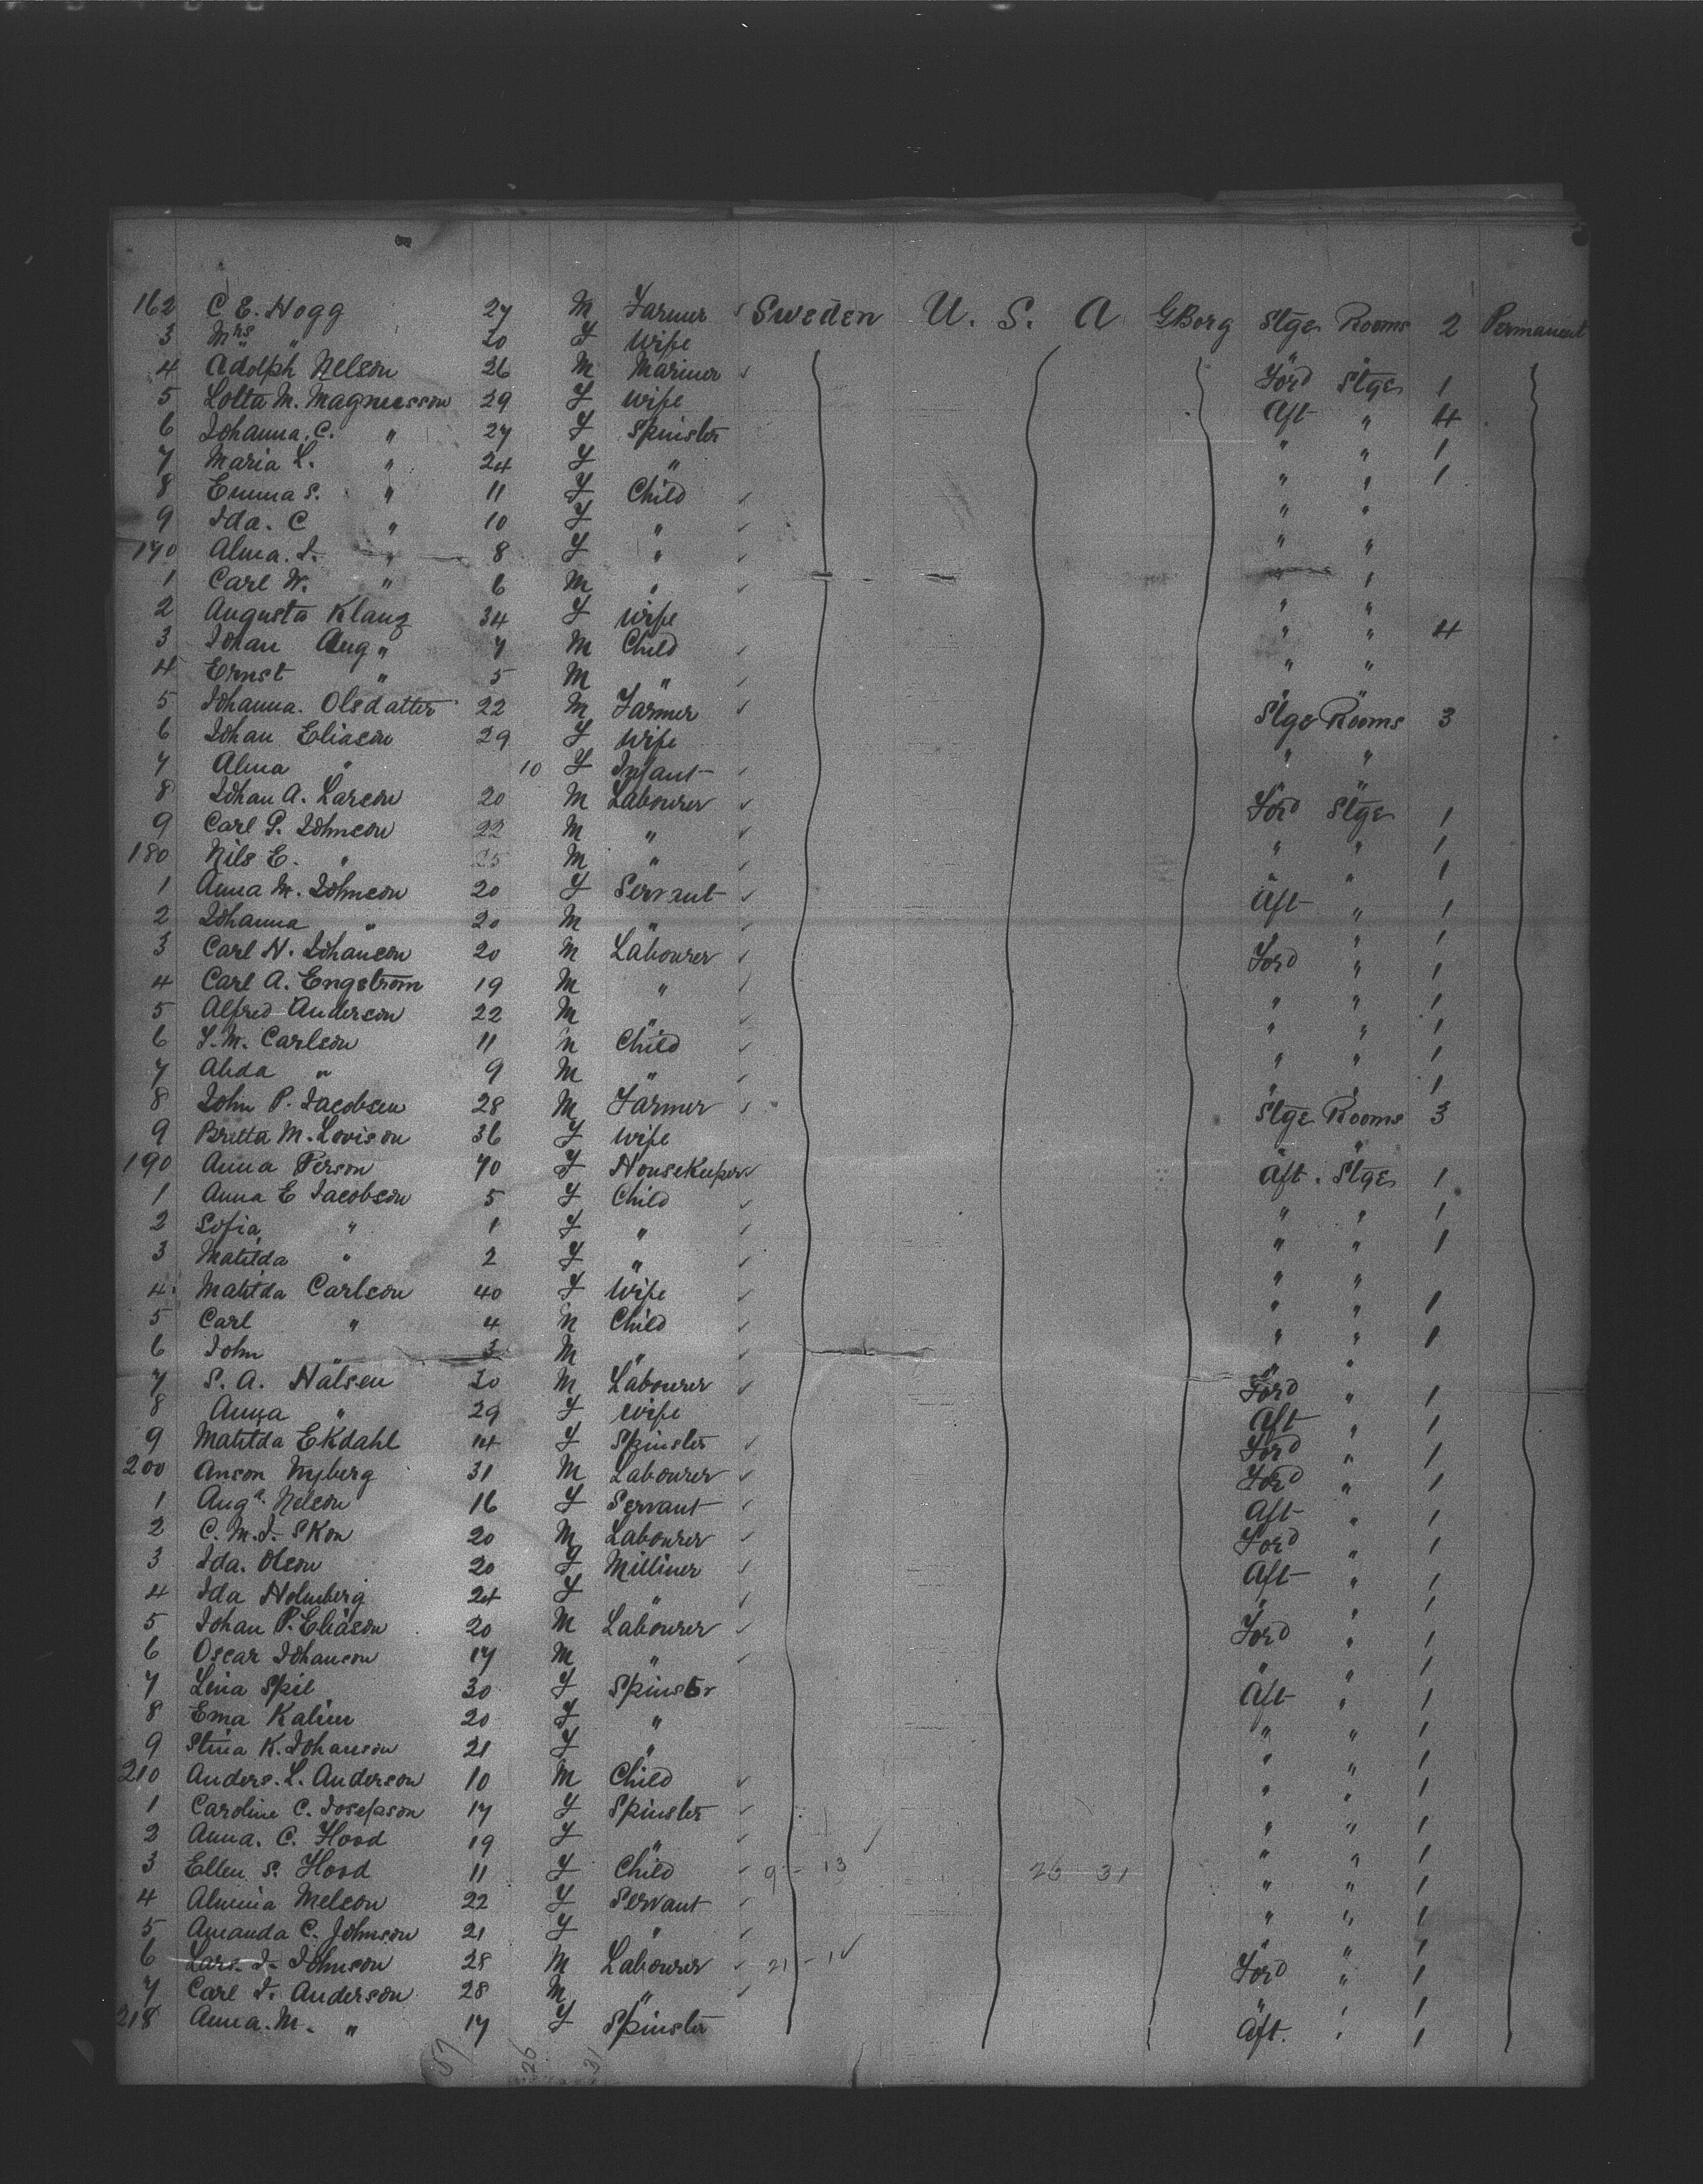 162 C. E. Hogg 27 M Farmer Sweden U. S. A GBorg Stge Rooms 2 Permanent
3 Mrs " 20 F Wife
4 Adolph Nelson 26 M Mariner Ford Stge 1
5 Lotta M. Magnusson 29 F Wife Aft " 4
6 Johanna. C. " 27 F Spinster " " 1
7 Maria L. " 24 F " " " 1
8 Emma S. " 11 F Child " "
9 Ida. C " 10 F " " "
170 Alma. I. " 8 F " " "
1 Carl W. " 6 M " " "
2 Augusta Klang 34 F Wife " " 4
3 Johan Aug " 7 M Child " "
4 Ernst " 5 M "
5 Johanna. Olsdatter 22 M Farmer Stge Rooms 3
6 Johan Eliason 29 F Wife " "
7 Alma " 10 F Infant " "
8 Johan A. Larson 20 M Labourer Ford Stge 1
9 Carl P. Johnson 22 M " " " 1
180 Nils E. " 25 M " " " 1
1 Anna M. Johnson 20 F Servant Aft " 1
2 Johanna " 20 M " " " 1
3 Carl N. Johanson 20 M Labourer Ford " 1
4 Carl A. Engstrom 19 M " " " 1
5 Alfred Anderson 22 M " " " 1
6 F. M. Carlson 11 M Child " " 1
7 Alida " 9 M " " " 1
8 John P. Jacobsen 28 M Farmer Stge Rooms 3
9 Britta M. Lovison 36 F Wife " "
190 Anna Person 70 F Housekeeper Aft. Stge 1
1 Anna E Jacobson 5 F Child " " 1
2 Sofia " 1 F " " " 1
3 Matilda " 2 F " " "
4 Matilda Carlson 40 F Wife " " 1
5 Carl " 4 M Child " " 1
6 John " 3 M " " "
7 S. A. Halsen 30 M Labourer Ford " 1
8 Anna " 29 F Wife Aft " 1
9 Matilda Ekdahl 14 F Spinster Ford " 1
200 Anson Nyberg 31 M Labourer Ford " 1
1 Auga. Nelson 16 F Servant Aft " 1
2 C. M. I. Skon 20 M Labourer Ford " 1
3 Ida. Olson 20 F Milliner Aft " 1
4 Ida Holmberg 24 F " " " 1
5 Johan P. Eliason 20 M Labourer Ford " 1
6 Oscar Johanson 17 M " " " 1
7 Lina Spil 30 F Spinster Aft " 1
8 Ema Kalim 20 F " " " 1
9 Stina K. Johanson 21 F " " " 1
210 Anders. L. Anderson 10 M Child " " 1
1 Caroline C. Josepson 17 F Spinster " " 1
2 Anna. C. Hood 19 F " " " 1
3 Ellen S. Hood 11 F Child 9 - 13 26 31 " " 1
4 Almina Melson 22 F Servant " " 1
5 Amanda C. Johnson 21 F " " " 1
6 Lars. I. Johnson 28 M Labourer 21 - 1 Ford " 1
7 Carl I. Anderson 28 M " " " 1
218 Anna. M. " 17 F Spinster Aft. " 1
57 26 31